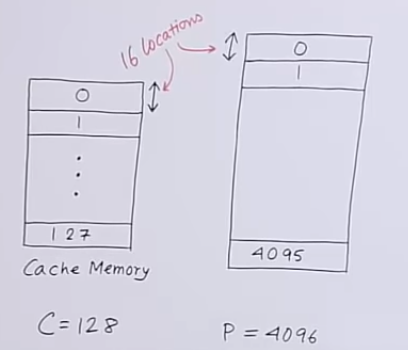 16 locations
0
1
127
Cache Memory
C = 128
0
1
4095
P = 4096